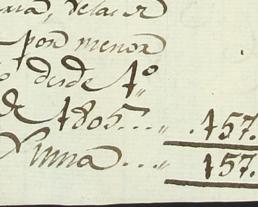 por menor
desde 1º
de 1805...„ .157.
Suma...„ 157.